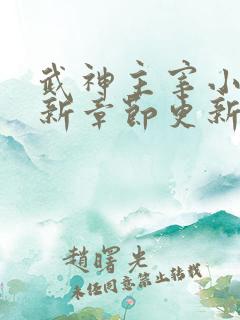 武神主宰小
新章節更新
趙曙光
未经同意禁止转载